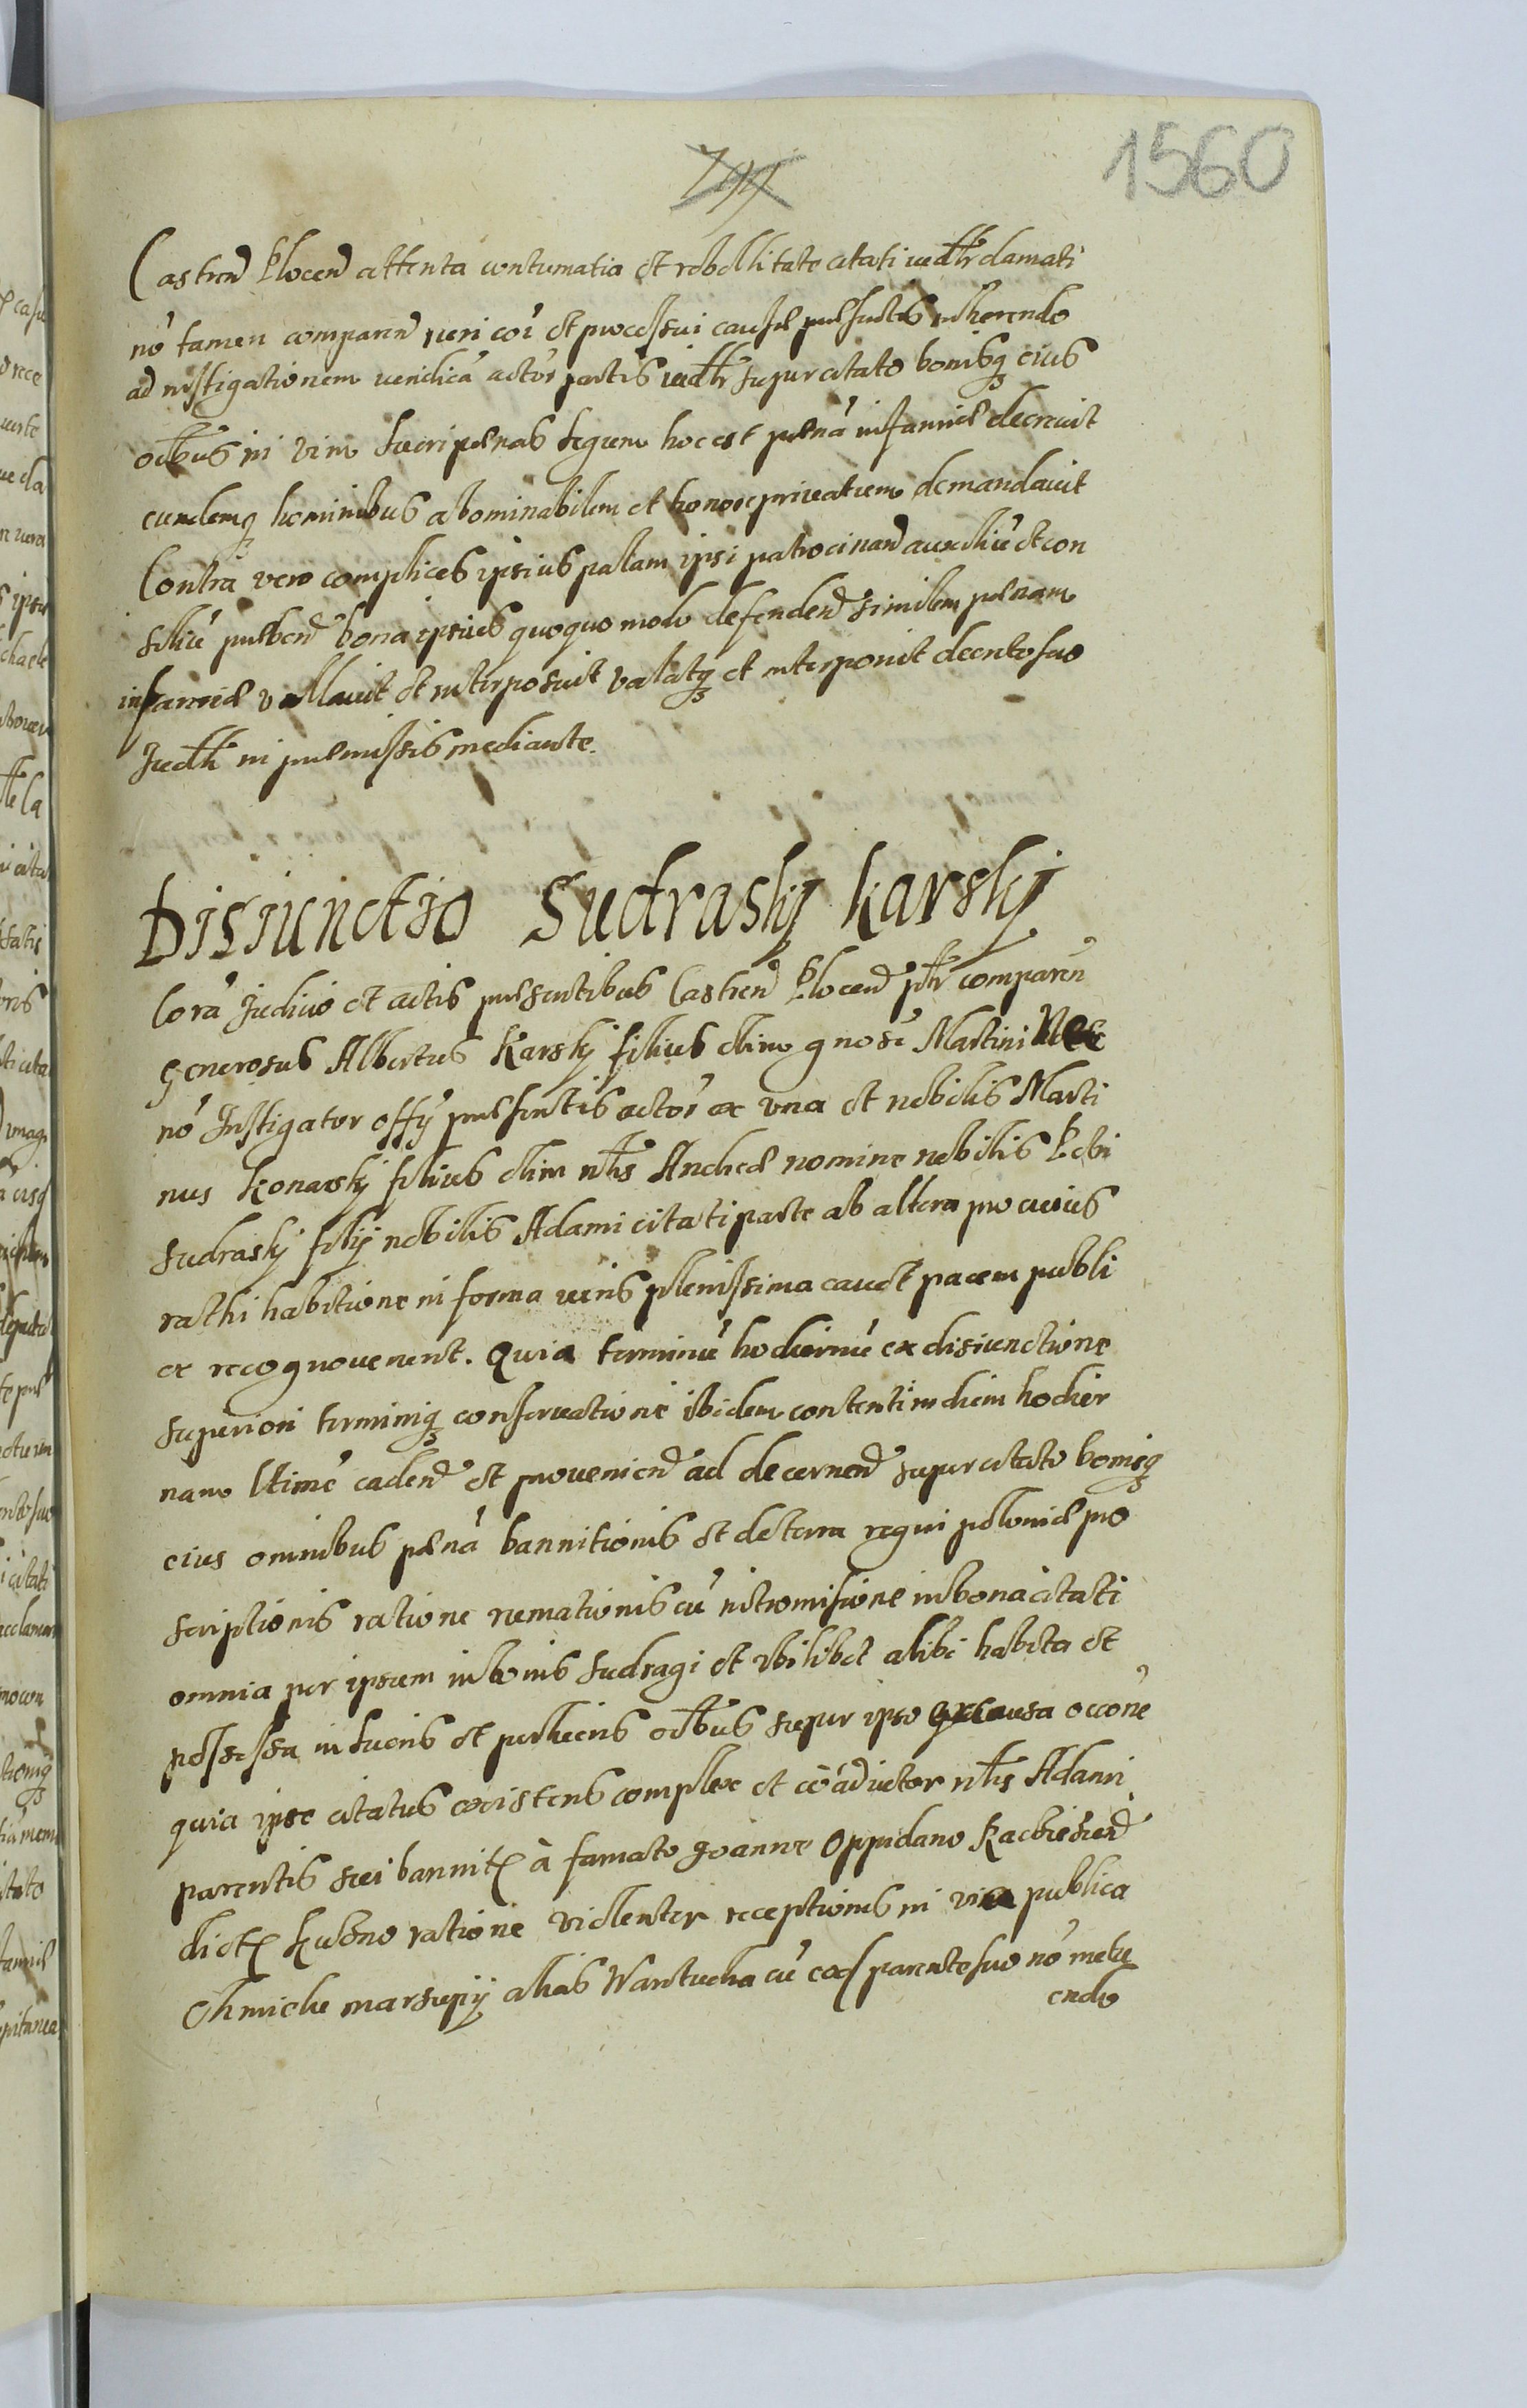 1560
Castren Plocen attenta contumatia et rebellitate citati iudtr clamati
nō tamen comparen iuri cōi et processui causæ præsentis inhærendo
ad instigationem veridicā actōr partis iudtr super citato bonisq eius
oibus in vim lucri pænas legum hoc est pænā infamiæ decrevit
eundemq hominibus abominabilem et honore privatum demandavit
Contra vero complices ipsius palam ipsi patrocinan auxiliū et con
siliū præben bona ipsius quoquo modo defenden similem pænam
infamiæ vallavit et interposuit valatq et interponit decreto suo
Iudtli in præmissis mediante.
Disiunctio Sudrasky Karsky
Corā Iudicio et actis præsentibus Castren Plocen ptr comparen
generosus Albertus Karsky filius olim gnosi Martini Nec
nō Instigator offy præsentis actōr ex una et nobilis Marti
nus Konarsky filius olim nlis Andreæ nomine nobilis Petri
Sudrasky fily nobilis Adami citati parte ab altera pro cuius
rathi habitione in forma iuris plenissima cavet pacem publi
ce recognoverunt. Quia terminū hodiernū ex disiunctione
superiori terminiq conservatione ibidem contenti in diem hodier
nam ltime caden et provenien ad decernen super citato bonisq
eius omnibus pænā bannitionis et de terra regni poloniæ pro
scriptionis ratione remationis cū intromissione in bona citati
omnia per ipsum in bonis Sudragi et ubilibet alibi habita et
possessa in lucris et perlucris oibus super ipso ex causa occone
quia ipse citatus existens complex et coadiutor nlis Adami
parentis sui bannit à famato Joanne Oppidano Racbiesien
dict Kusbno ratione violenter receptionis in via publica
Chmiclu marsupy alias Wantucha cū eod parente suo nō metu
endo